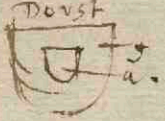 DOVST
g
a.